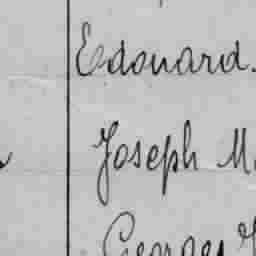 Edouard.
Joseph M.
Georges